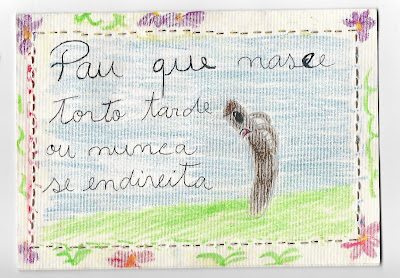 Pau que nasce
torto tarde
ou nunca
se endireita